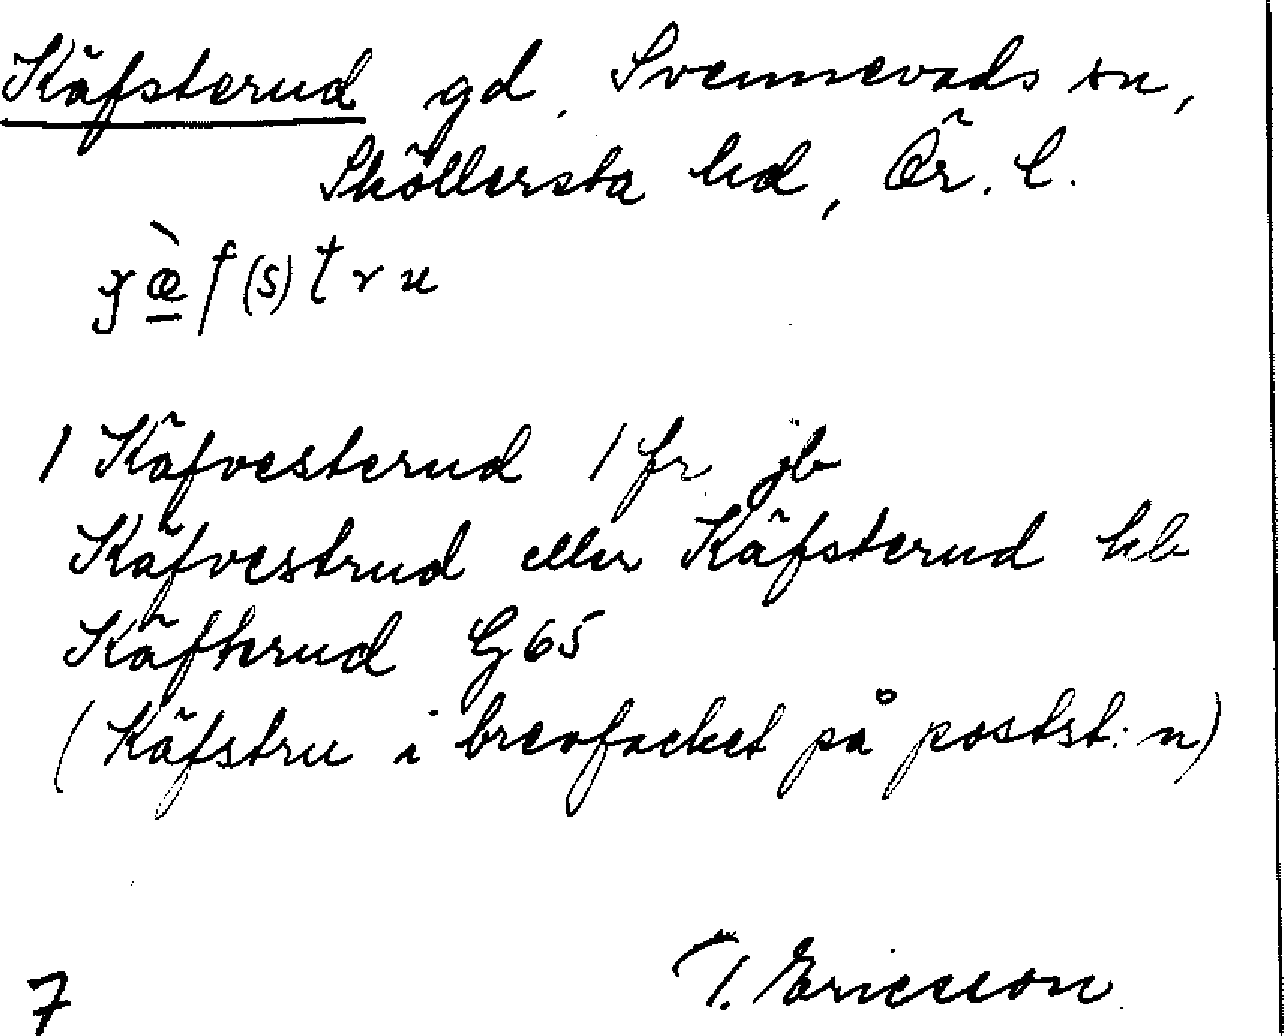 Käfsterud gd, Svennevads sn,
Sköllersta hd, Ör. l.
(s)tru
1 Käfvesterud 1 fr jb
Käfvestrud eller Käfsterud hb
Käfterud G 65
(Käfstru i brevfacket på postst:n)
T. Ericsson
7